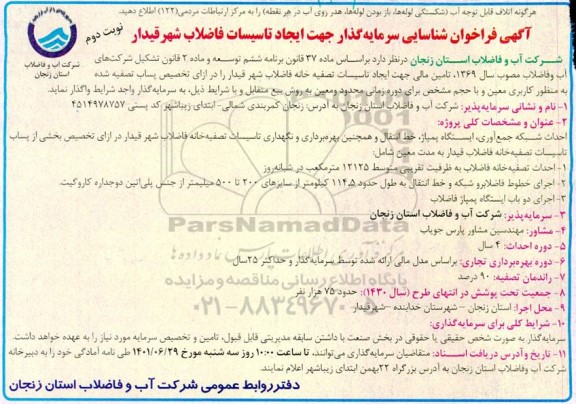 هرگونه اتلاف قابل توجه آب (شکستگی لوله‌ها، باز بودن لوله‌ها، هدر روی آب در هر نقطه) را به مرکز ارتباطات مردمی (۱۲۲) اطلاع دهید.
نوبت دوم
آگهی فراخوان شناسایی سرمایه‌گذار جهت ایجاد تاسیسات فاضلاب شهر قیدار
شرکت آب و فاضلاب
استان زنجان
شرکت آب و فاضلاب استان زنجان درنظر دارد براساس ماده ۳۷ قانون برنامه ششم توسعه و ماده ۲ قانون تشکیل شرکت‌های
آب وفاضلاب مصوب سال ۱۳۶۹، تامین مالی جهت ایجاد تاسیسات تصفیه خانه فاضلاب شهر قیدار را در ازای تخصیص پساب تصفیه شده
به منظور کاربری معین و با حجم مشخص برای دوره زمانی محدود ومعین به روش بیع متقابل و با شرایط ذیل، به سرمایه‌گذار واجد شرایط واگذار نماید.
۱- نام و نشانی سرمایه‌پذیر: شرکت آب و فاضلاب استان زنجان به آدرس: زنجان کمربندی شمالی- ابتدای زیباشهر کد پستی: ۴۵۱۴۹۷۸۷۵۷
۲- عنوان و مشخصات کلی پروژه:
احداث شبکه جمع‌آوری، ایستگاه پمپاژ، خط انتقال و همچنین بهره‌برداری و نگهداری تاسیسات تصفیه‌خانه فاضلاب شهر قیدار در ازای تخصیص بخشی از پساب
تاسیسات تصفیه‌خانه فاضلاب قیدار به مدت معین شامل:
۱- احداث تصفیه‌خانه فاضلاب به ظرفیت تقریبی متوسط ۱۲۱۲۵ مترمکعب در شبانه‌روز
۲- اجرای خطوط فاضلابرو شبکه و خط انتقال به طول حدود ۱۱۴.۵ کیلومتر از سایزهای ۲۰۰ تا ۵۰۰ میلیمتر از جنس پلی‌اتیلن دوجداره کاروگیت.
۳- اجرای دو باب ایستگاه پمپاژ فاضلاب
۳- سرمایه‌پذیر: شرکت آب و فاضلاب استان زنجان
۴- مشاور: مهندسین مشاور پارس جویاب
۵- دوره احداث: ۴ سال
۶- دوره بهره‌برداری تجاری: براساس مدل مالی ارائه شده توسط سرمایه‌گذار و حداکثر ۲۵سال
۷- راندمان تصفیه: ۹۰ درصد
۸- جمعیت تحت پوشش در انتهای طرح (سال ۱۴۳۰): حدود ۷۵ هزار نفر
۹- محل اجرا: استان زنجان - شهرستان خدابنده - شهرقیدار
۱۰- شرایط کلی برای سرمایه‌گذاری:
سرمایه‌گذار به صورت شخص حقیقی یا حقوقی در بخش صنعت با داشتن سابقه مدیریتی قابل قبول، تامین و تخصیص سرمایه مورد نیاز را به عهده خواهد داشت.
۱۱- تاریخ و آدرس دریافت اسناد: متقاضیان سرمایه‌گذاری می‌توانند، تا ساعت ۱۰:۰۰ روز سه شنبه مورخ ۱۴۰۱/۰۶/۲۹ طی نامه آمادگی خود را به دبیرخانه
شرکت آب وفاضلاب استان زنجان به آدرس بزرگراه ۲۲بهمن ابتدای زیباشهر اعلام نمایند.
دفتر روابط عمومی شرکت آب و فاضلاب استان زنجان
ParsNamadData
پایگاه اطلاع رسانی مناقصه و مزایده
۰۲۱-۸۸۳۴۹۶۷۰